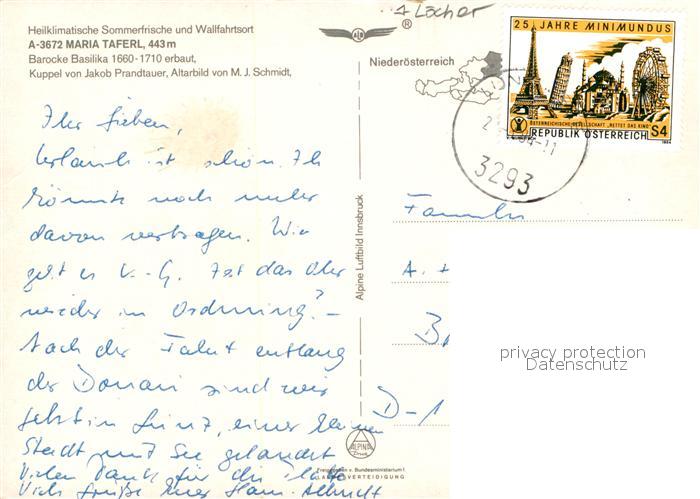 1 Löcher
Heilklimatische Sommerfrische und Wallfahrtsort
A-3672 MARIA TAFERL, 443 m
Barocke Basilika 1660-1710 erbaut,
Kuppel von Jakob Prandtauer, Altarbild von M. J. Schmidt,
®
Niederösterreich
25 JAHRE MINIMUNDUS
ÖSTERREICHISCHE GESELLSCHAFT „RETTET DAS KIND“
REPUBLIK ÖSTERREICH S4
3293
Ihr Lieben,
Urlaub ist schön. Ich
könnte noch mehr
davon vertragen. Wie
geht es K.-G. Ist das Ohr
wieder in Ordnung? –
Nach der Fahrt entlang
der Donau sind wir
jetzt in Linz, einer kleinen
Stadt mit See gelandet
Vielen Dank für die
Viele Grüße Eure Hann. Albrecht
Alpine Luftbild Innsbruck
Familie
A.
B
D-1
privacy protection
Datenschutz
ALPINE
Druck
Freigegeben v. Bundesministerium f.
LANDESVERTEIDIGUNG